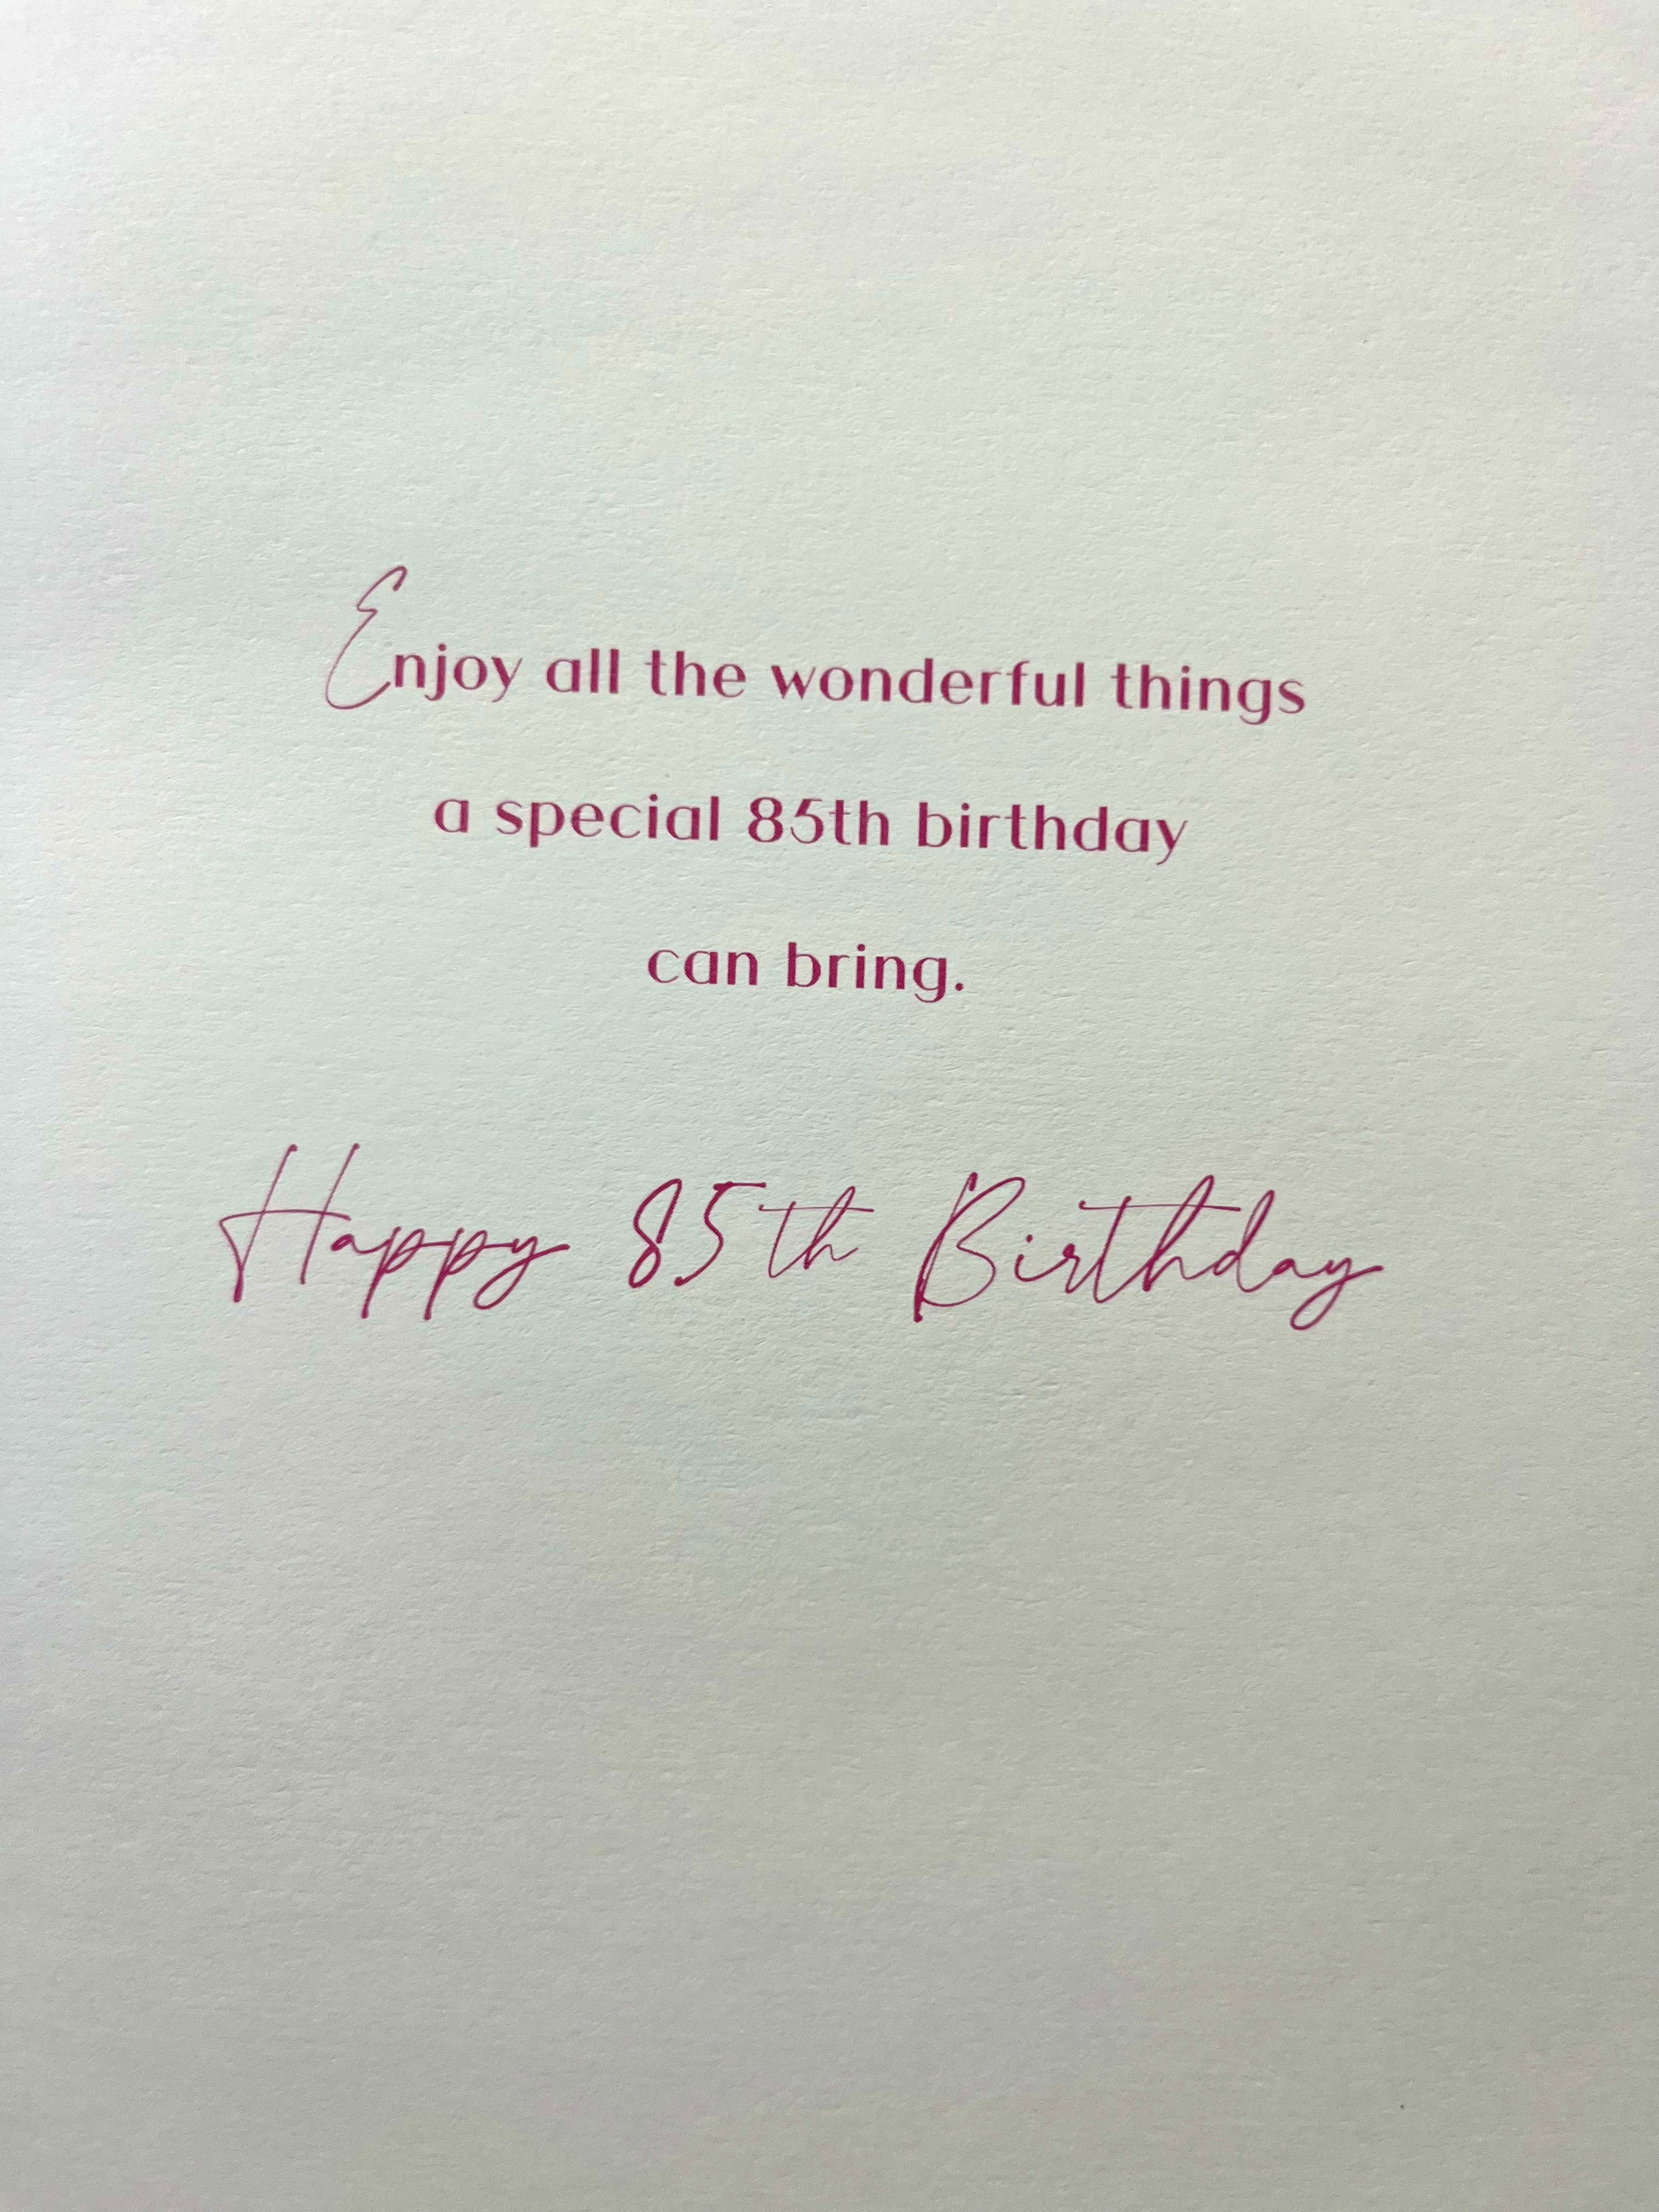 Enjoy all the wonderful things
a special 85th birthday
can bring.
Happy 85th Birthday